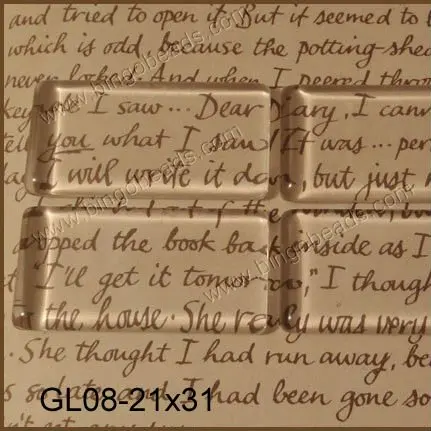 and tried to open it. But it seemed to
which is odd, because the potting-shed
never locked. And when I peered thro
key I saw... Dear Diary, I cann
tell you what I saw! It was... per
I will write it down, but just
of the
opped the book back inside as I
t "I'll get it tomorrow," I though
the house. She really was very
. She thought I had run away, be
s so late and I had been gone so
www.bingobeads.com
GL08-21x31